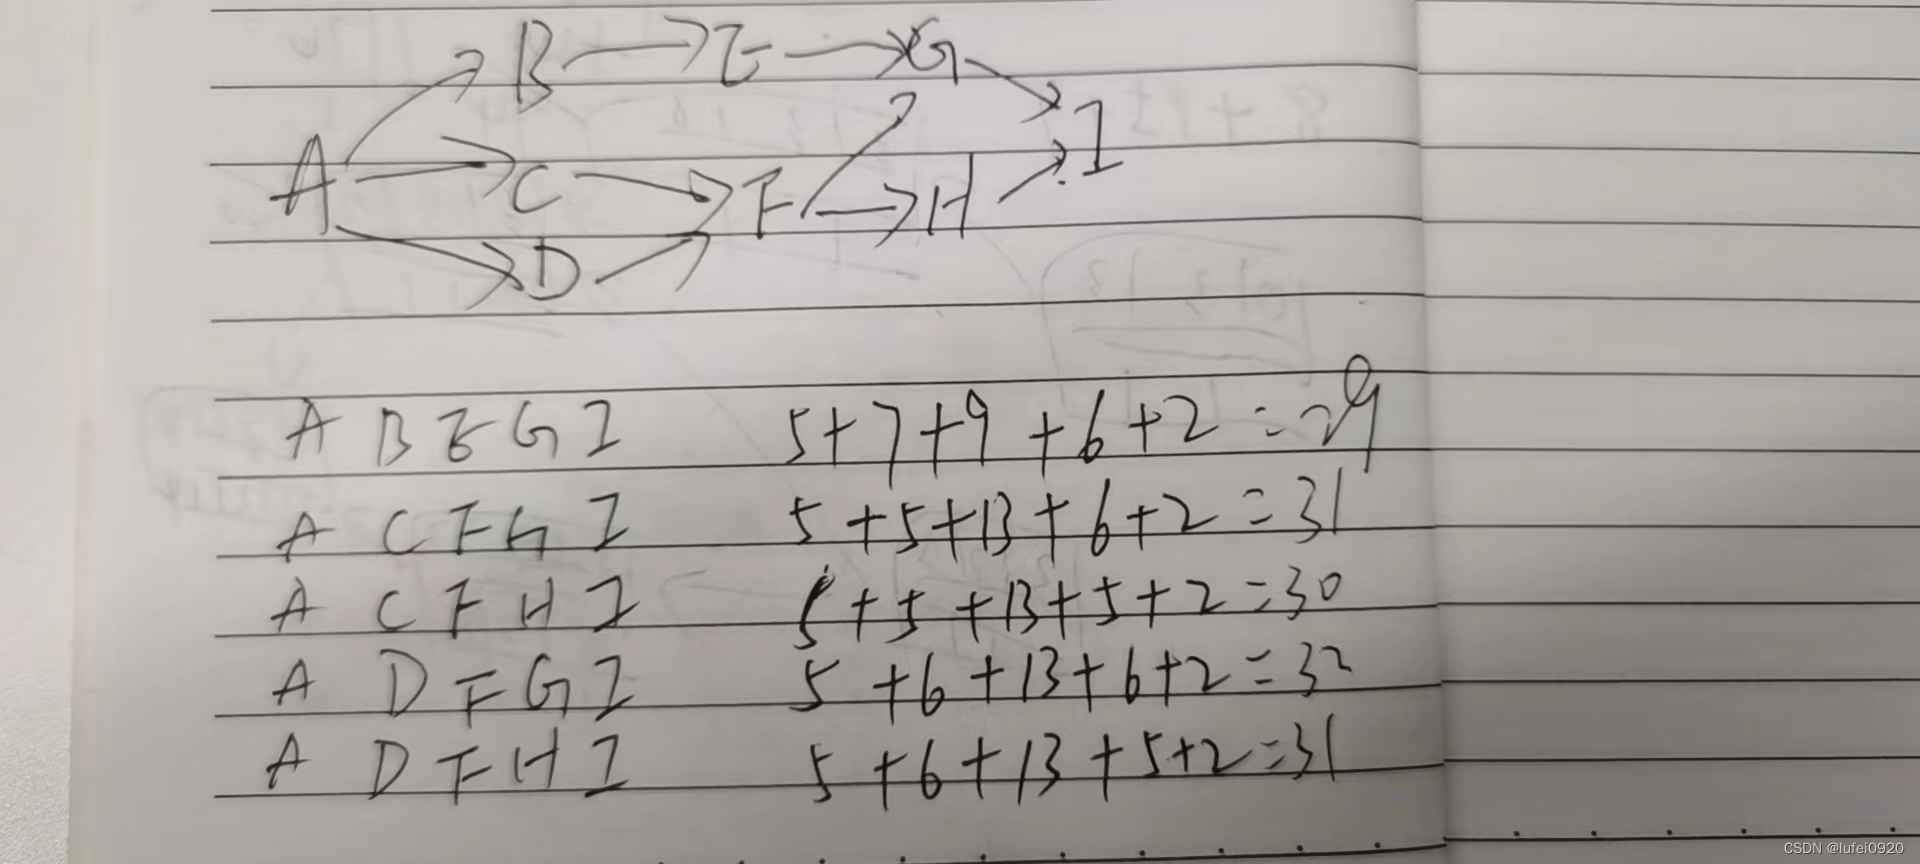 B → E → G
A → C → F → H → I
D
A B E G I 5+7+9+6+2=29
A C F G I 5+5+13+6+2=31
A C F H I 5+5+13+5+2=30
A D F G I 5+6+13+6+2=32
A D F H I 5+6+13+5+2=31
CSDN @lufei0920